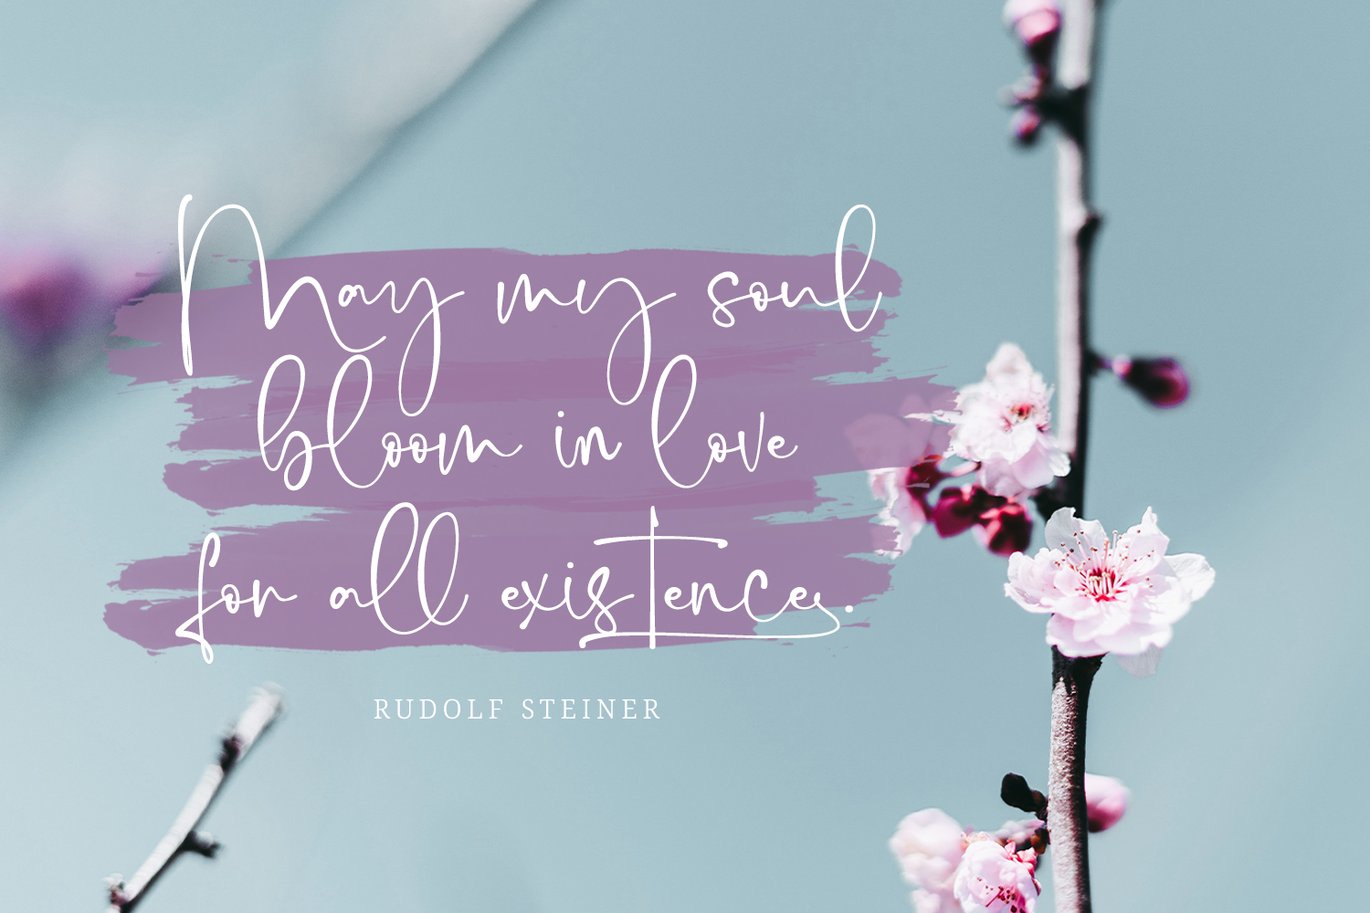 May my soul
bloom in love
for all existence.
RUDOLF STEINER